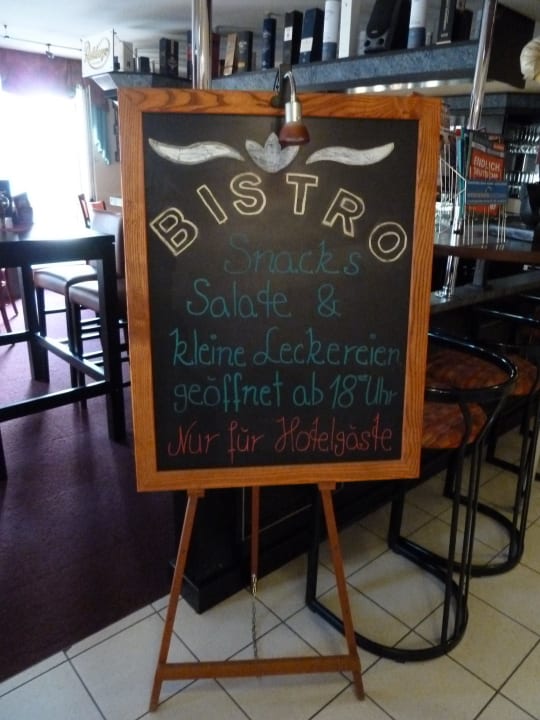 BISTRO
Snacks
Salate &
kleine Leckereien
geöffnet ab 18⁰⁰ Uhr
Nur für Hotelgäste
ENDLICH